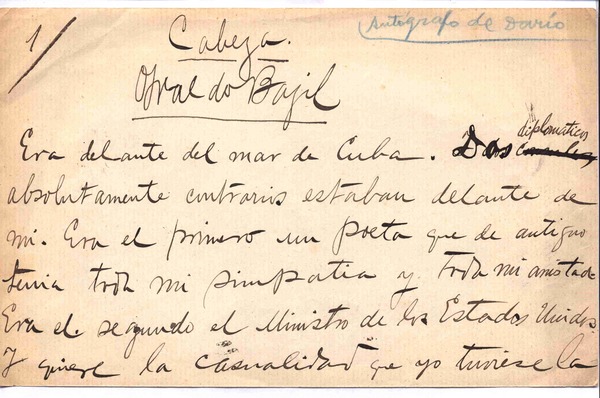 1/
Autógrafo de Darío
Cabeza.
Osvaldo Bazil
Era delante del mar de Cuba. Dos diplomaticos
absolutamente contrarios estaban delante de
mi. Era el primero un poeta que de antiguo
tenia toda mi simpatia y toda mi amistad
Era el segundo el Ministro de los Estados Unidos.
Y quiere la casualidad que yo tuviese la